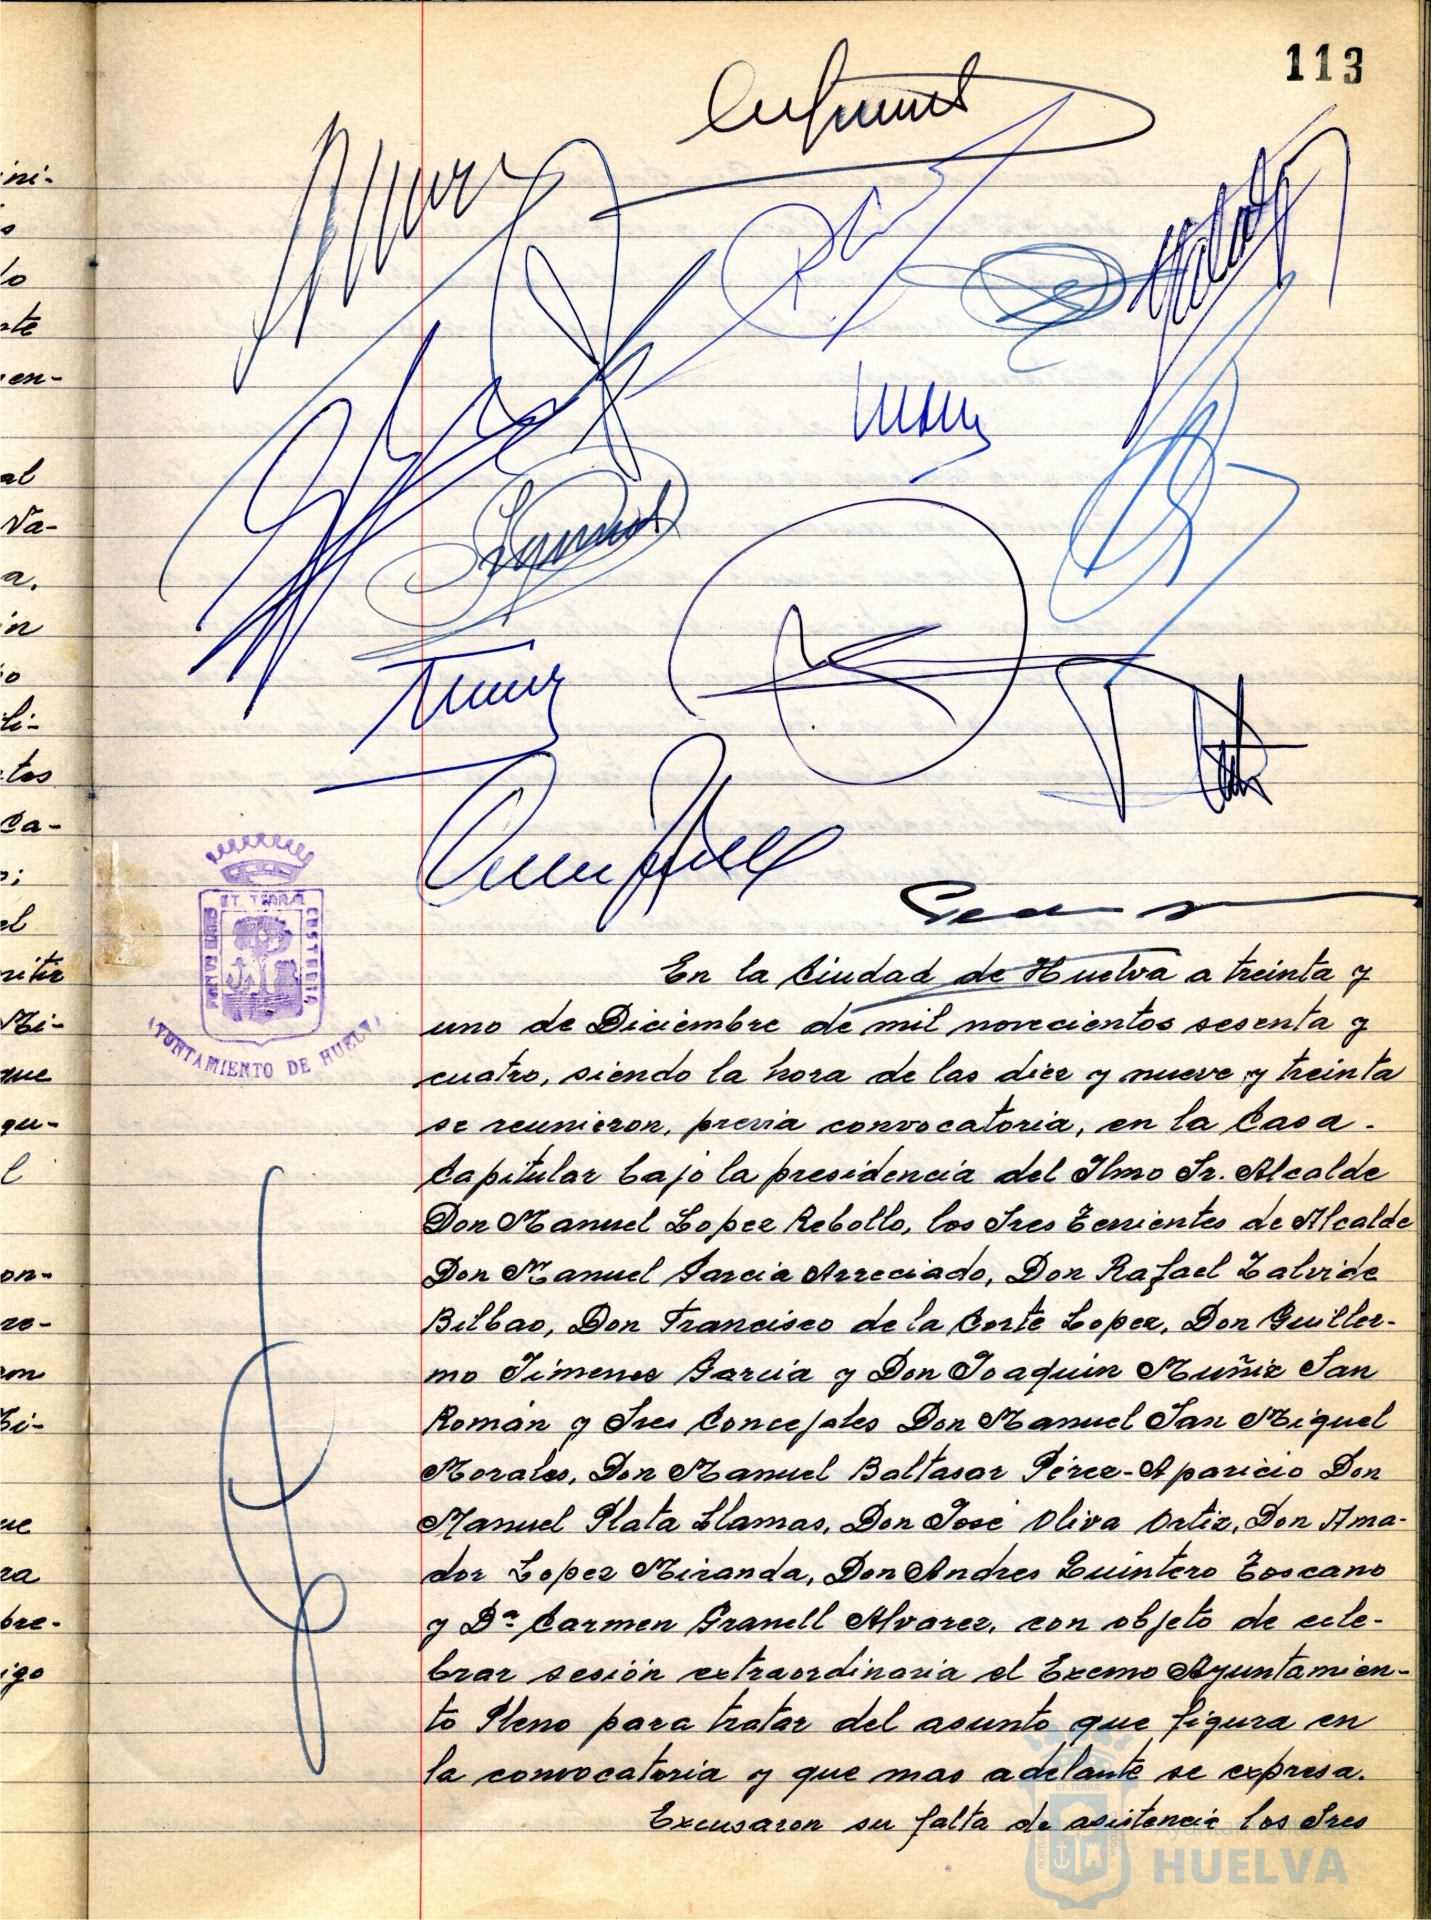 113
En la Ciudad de Huelva a treinta y
uno de Diciembre de mil novecientos sesenta y
cuatro, siendo la hora de las diez y nueve y treinta
se reunieron, previa convocatoria, en la Casa.
Capitular bajo la presidencia del Ilmo Sr. Alcalde
Don Manuel Lopez Rebollo, los Sres Tenientes de Alcalde
Don Manuel Garcia Arreciado, Don Rafael Zalvide
Bilbao, Don Francisco de la Corte Lopez, Don Guiller-
mo Jimenez Garcia y Don Joaquin Muñiz San
Román y Sres Concejales Don Manuel San Miguel
Morales, Don Manuel Baltasar Pérez-Aparicio Don
Manuel Plata Llamas, Don José Oliva Ortiz, Don Ama-
dor Lopez Miranda, Don Andres Quintero Toscano
y Dª Carmen Granell Alvarez, con objeto de cele-
brar sesión extraordinaria el Excmo Ayuntamien-
to Pleno para tratar del asunto que figura en
la convocatoria y que mas adelante se expresa.
Excusaron su falta de asistencia los Sres
ET TERRÆ
CUSTODIA
AYUNTAMIENTO DE HUELVA
Ayuntamiento de
HUELVA
ni-
s
lo
en-
al
Va-
a.
in
li-
tos
Ca-
el
Mi-
que
qu-
on-
re-
ra
bre-
igo